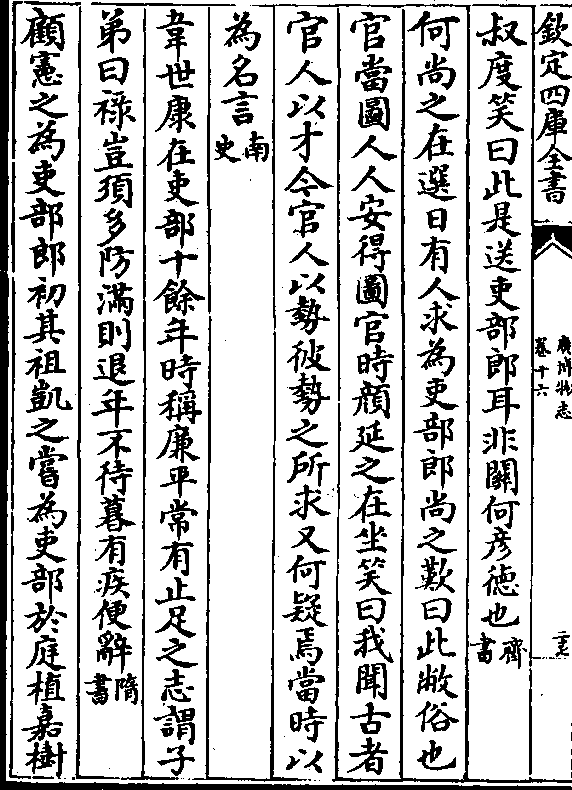 欽定四庫全書
廣博物志
卷十六
叔度笑曰此是送吏部郎耳非關何彦徳也齊書
何尚之在選日有人求為吏部郎尚之歎曰此敝俗也
官當圖人人安得圖官時顔延之在坐笑曰我聞古者
官人以才今官人以勢彼勢之所求又何疑焉當時以
為名言南史
韋世康在吏部十餘年時稱廉平常有止足之志謂子
弟曰禄豈須多防滿則退年不待暮有疾便辭隋書
顧憲之為吏部郎初其祖凱之嘗為吏部於庭植嘉樹